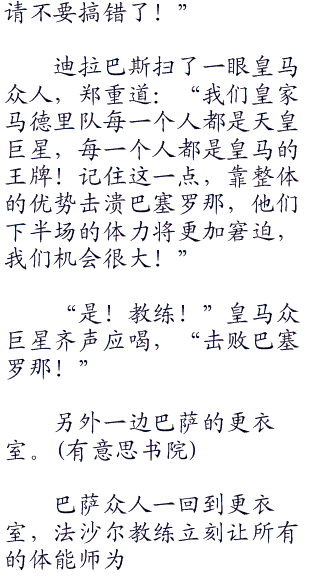 请不要搞错了！”
迪拉巴斯扫了一眼皇马
众人，郑重道：“我们皇家
马德里队每一个人都是天皇
巨星，每一个人都是皇马的
王牌！记住这一点，靠整体
的优势击溃巴塞罗那，他们
下半场的体力将更加窘迫，
我们机会很大！”
“是！教练！”皇马众
巨星齐声应喝，“击败巴塞
罗那！”
另外一边巴萨的更衣
室。(有意思书院)
巴萨众人一回到更衣
室，法沙尔教练立刻让所有
的体能师为